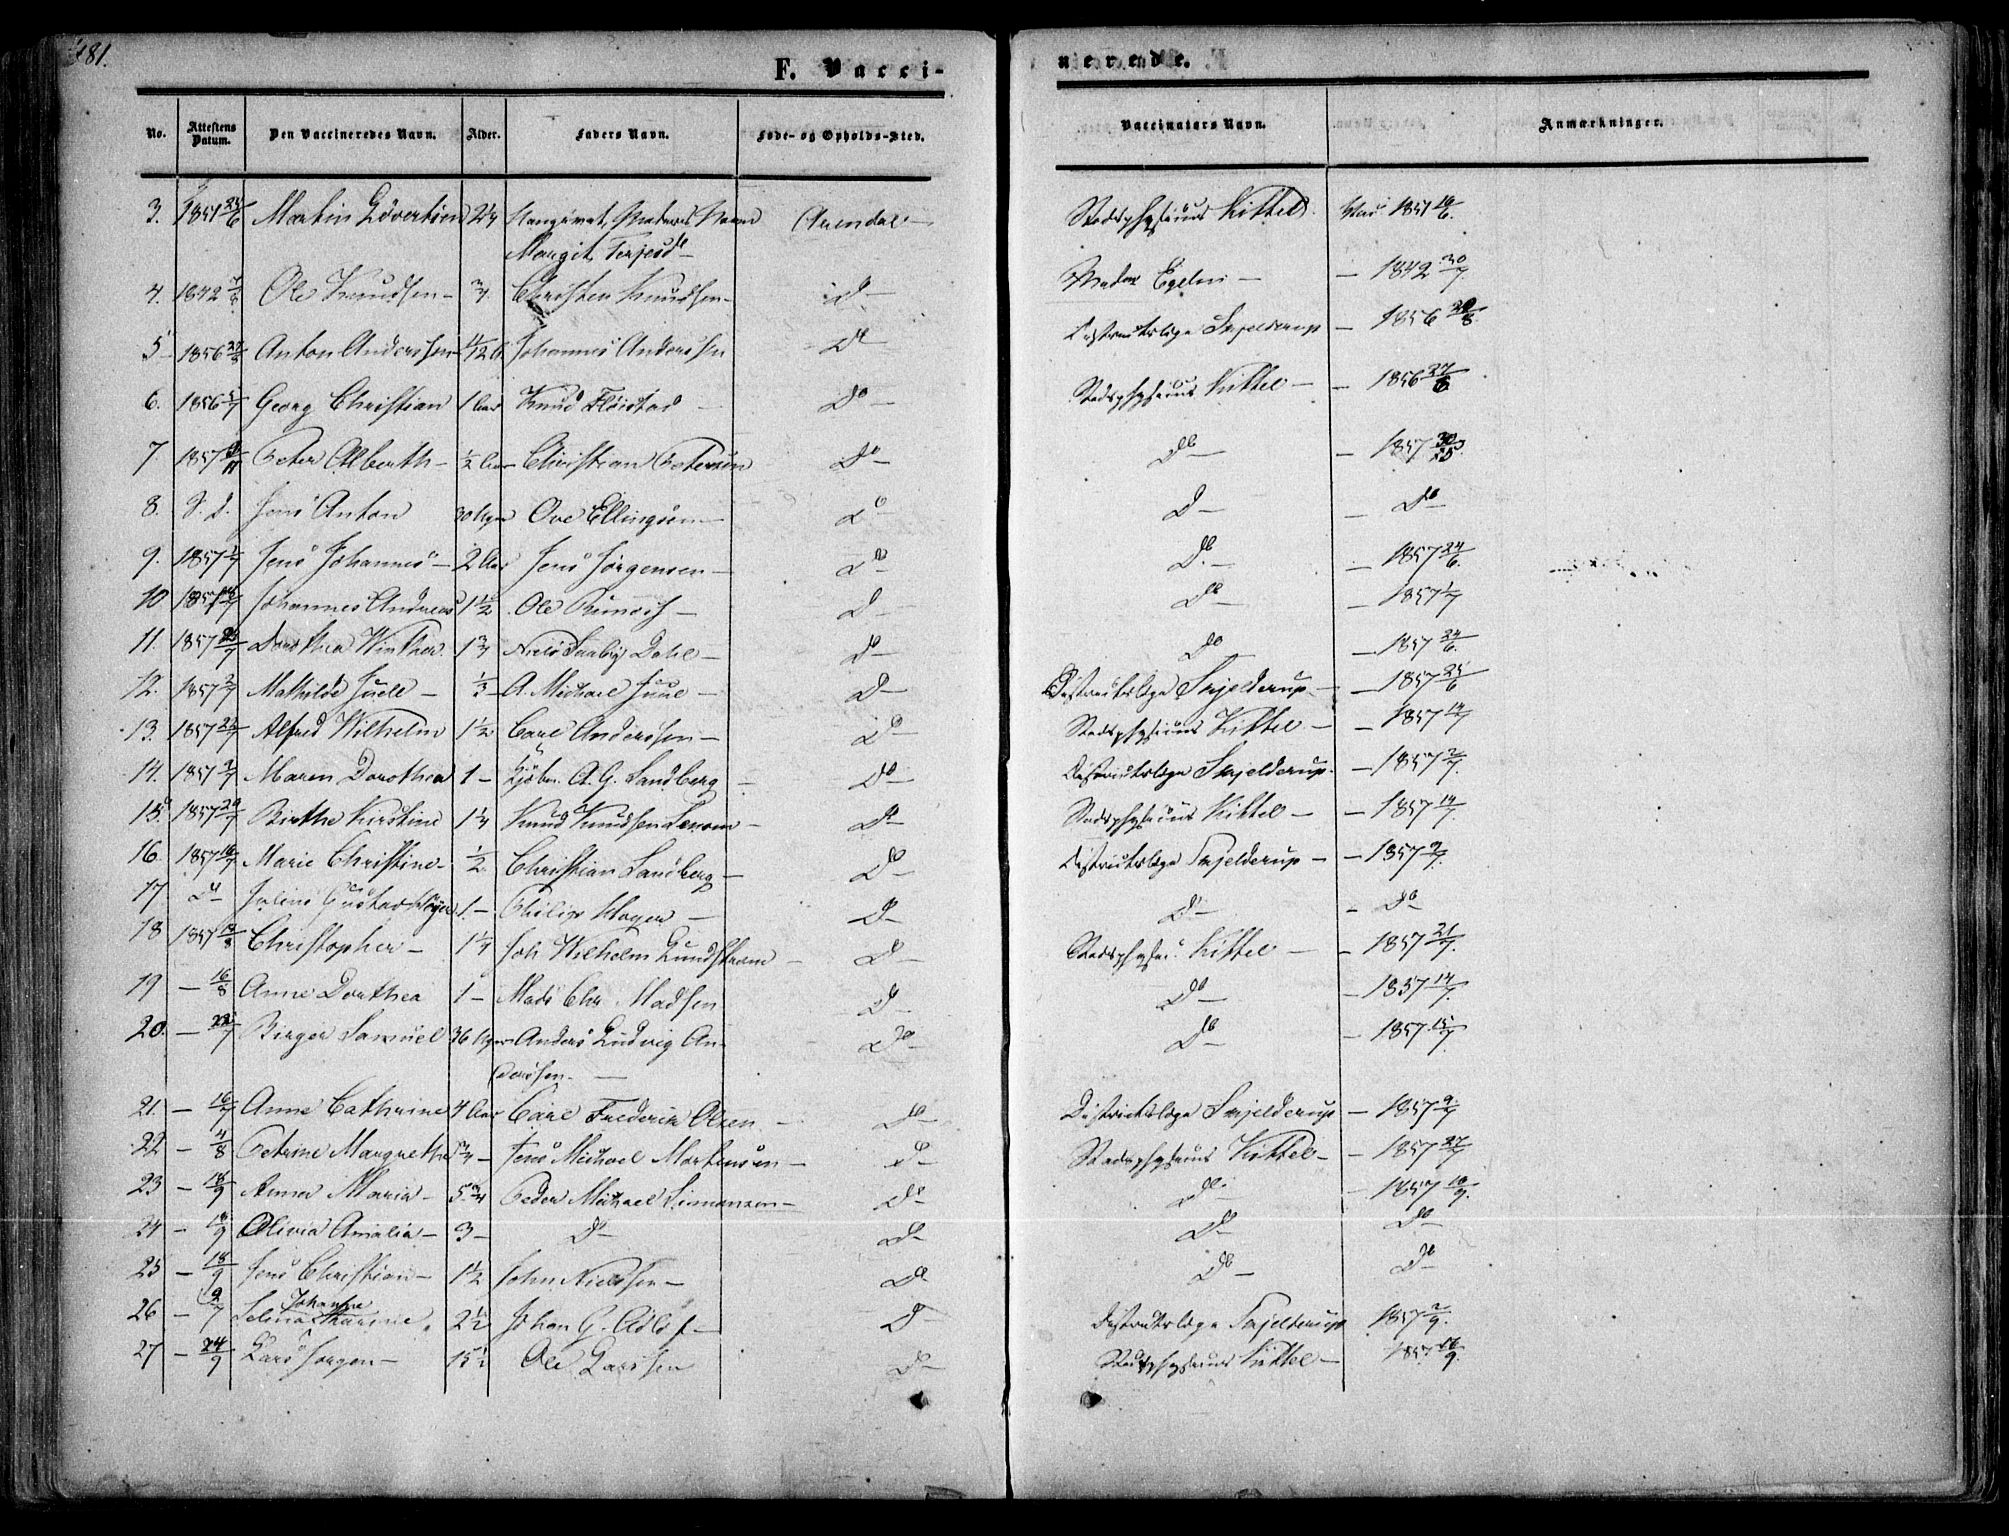 481.
F. Vacci-
nerende.
No.
Attestens Datum.
Den Vaccineredes Navn.
Alder.
Faders Navn.
Føde- og Opholds-Sted.
Vaccinators Navn.
Anmærkninger.
3. 1851 Martin 2 1/4 Navn Arendal Stadsphysicus Kittel. 1851
Margit Terjesd
4. 1842 Ole Knudsen 3/4 Christen Knudsen Do Madm 1842 30/7
5 1856 Anton Anderssen Johannes Anderssen Do Districtslæge Skjelderup 1856
6. 1856 Georg Christian 1 Aar Knud Fløistad Do Stadsphysicus Kittel 1856
7 1857 Peter Alberth 1/2 Aar Christian Petersen Do Do 1857
8. S. D. Jens Anton 30 Uger Ove Ellingsen Do Do Do
9. 1857 Jens Johannes 2 Aar Jens Jørgensen Do Do 1857 24/6.
10 1857 Johannes Andreas 1 1/2 Ole Do Do 1857 1/7
11. 1857 Dorothea Winther 1 3/4 Niels Dahl Do Do 1857 24/6.
12. 1857 2/7 Mathilde Juell 1/3 A. Michael Juul Do Districtslæge Skjelderup 1857 25/6
13. 1857 Alfred Wilhelm 1 1/2 Carl Anderssen Do Stadsphysicus Kittel 1857 14/7
14. 1857 2/7 Maren Dorothea 1 Kjøbm. A. G. Sandberg Do Districtslæge Skjelderup 1857 2/7.
15. 1857 Birthe Kirstine 1 1/4 Knud Knudsen Do Stadsphysicus Kittel 1857 14/7.
16. 1857 16/7 Marie Christine 1/2 Christian Sandberg Do Districtslæge Skjelderup 1857 9/7.
17 Do Julius Gustav 1 Philip Do Do Do
18 1857 Christopher 1 1/4 Joh Wilhelm Lundstrøm Do Stadsphysic. Kittel 1857 21/7.
19 16/8 Anne Dorthea 1 Mads Chr. Madsen Do Do 1857 14/7.
20. Birger Samuel 36 Uger Anders Ludvig An- Do Do 1857
derssen.
21. 16/7 Anne Cathrine 4 Aar Carl Frederik Olsen Do Districtslæge Skjelderup 1857 9/7
22 4/8 Petrine Margrethe 3/4 Jens Michael Mortensen Do Stadsphysicus Kittel 1857 27/7
23 18/9 Anna Maria 5 3/4 Peder Michael Simonsen Do Do 1857
24 18/9 Olivia Amalia 3 Do Do Do Do
25 18/9 Jens Christian 1 1/2 John Nielsen Do Do Do
Johanne
26 Selma 2 1/2 Johan G. Do Districtslæge Skjelderup 1857
27 24/9 Lars Jørgen 15 1/2 Ole Larssen Do Stadsphysicus Kittel 1857